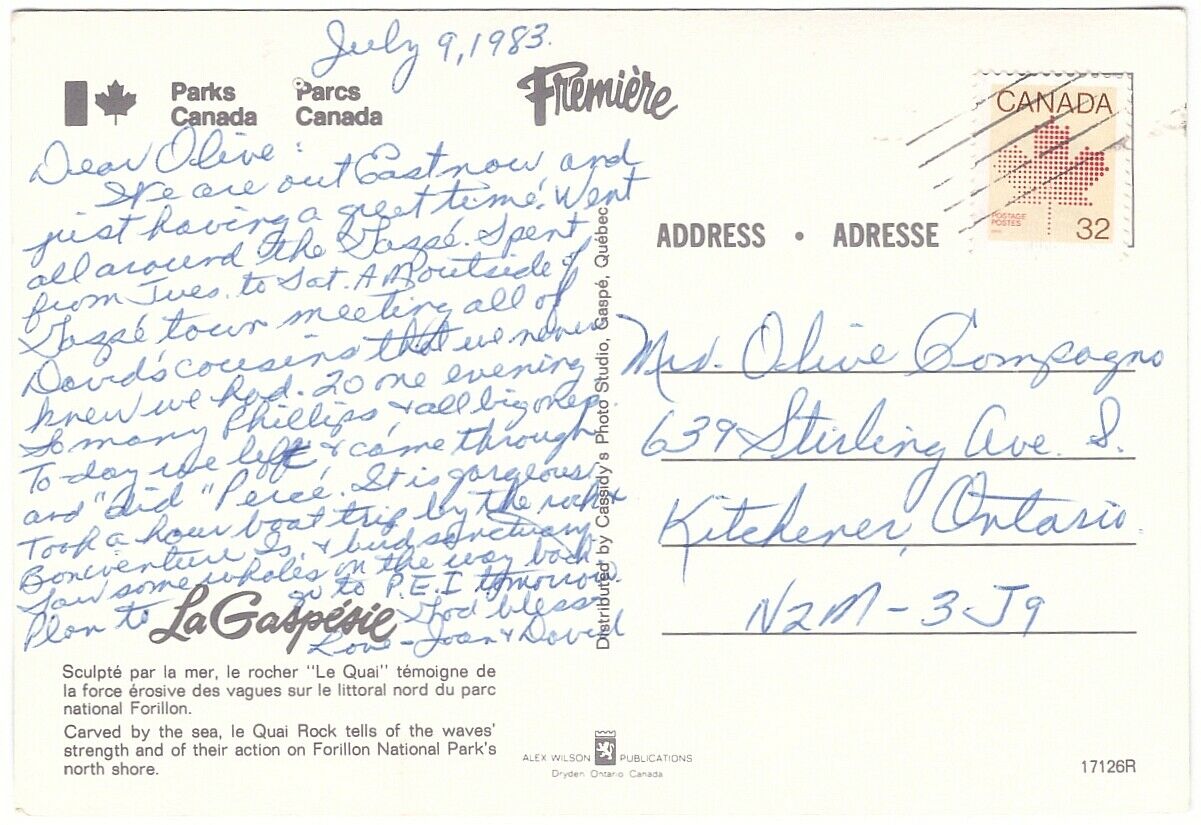 July 9, 1983.
Parks Canada
Parcs Canada
Première
CANADA
POSTAGE
POSTES
32
Dear Olive:
We are out East now and
just having a great time. Went
all around the Gaspé. Spent
from Tues. to Sat. A.M outside of
Gaspé town meeting all of
David's cousins that we never
knew we had. 20 one evening
So many Phillips & all big ones.
To-day we left & came through
and "did" Percé. It is gorgeous.
Took a hour boat trip by the rock &
Bonaventure Is. & bird sanctuary
Saw some whales on the way back
Plan to go to P.E.I tomorrow.
God bless
Love - Joan & David
La Gaspésie
Sculpté par la mer, le rocher "Le Quai" témoigne de
la force érosive des vagues sur le littoral nord du parc
national Forillon.
Carved by the sea, le Quai Rock tells of the waves'
strength and of their action on Forillon National Park's
north shore.
Distributed by Cassidy's Photo Studio, Gaspé, Québec
ADDRESS • ADRESSE
Mrs. Olive Compagno
639 Stirling Ave. S.
Kitchener, Ontario.
N2M - 3J9
ALEX WILSON PUBLICATIONS
Dryden Ontario Canada
17126R